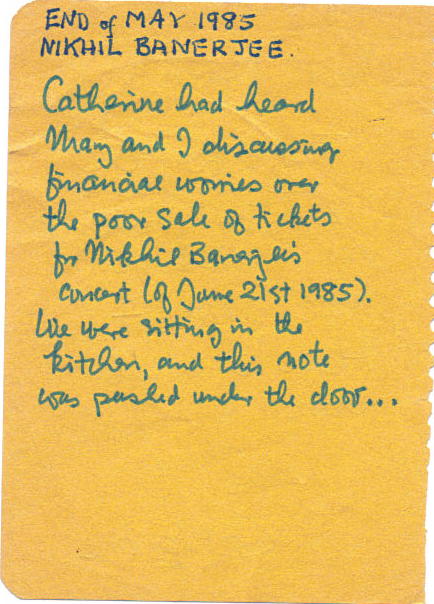 END of MAY 1985
NIKHIL BANERJEE.
Catherine had heard
Mary and I discussing
financial worries over
the poor sale of tickets
for Nikhil Banerjee's
concert (of June 21st 1985).
We were sitting in the
kitchen, and this note
was pushed under the door...